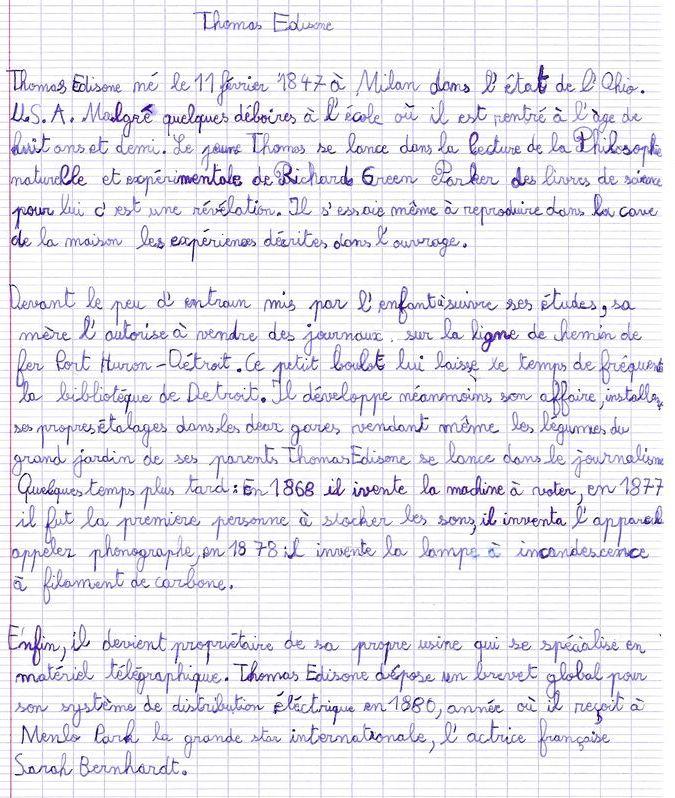 Thomas Edisone
Thomas Edisone né le 11 février 1847 à Milan dans l'état de l'Ohio.
U.S.A. Malgré quelques déboires à l'école où il est rentré à l'âge de
huit ans et demi. Le jeune Thomas se lance dans la lecture de la Philosophie
naturelle et expérimentale de Richard Green Parker des livres de science
pour lui c'est une révélation. Il s'essaie même à reproduire dans la cave
de la maison les expériences décrites dans l'ouvrage.
Devant le peu d'entrain mis par l'enfant à suivre ses études, sa
mère l'autorise à vendre des journaux sur la ligne de chemin de
fer Port Huron-Détroit. Ce petit boulot lui laisse le temps de fréquent
la bibliotéque de Detroit. Il développe néanmoins son affaire, installe
ses propres étalages dans les deux gares vendant même les légumes du
grand jardin de ses parents Thomas Edisone se lance dans le journalisme
Quelques temps plus tard : En 1868 il ivente la machine à voter, en 1877
il fut la première personne à stocker les sons, il inventa l'appareil
appelez phonographe, en 1878 il invente la lampe à incandescence
à filament de carbone.
Enfin, il devient propriétaire de sa propre usine qui se spécialise en
matériel télégraphique. Thomas Edisone dépose un brevet global pour
son système de distribution éléctrique en 1880, année où il reçoit à
Menlo Park la grande star internationale, l'actrice française
Sarah Bernhardt.